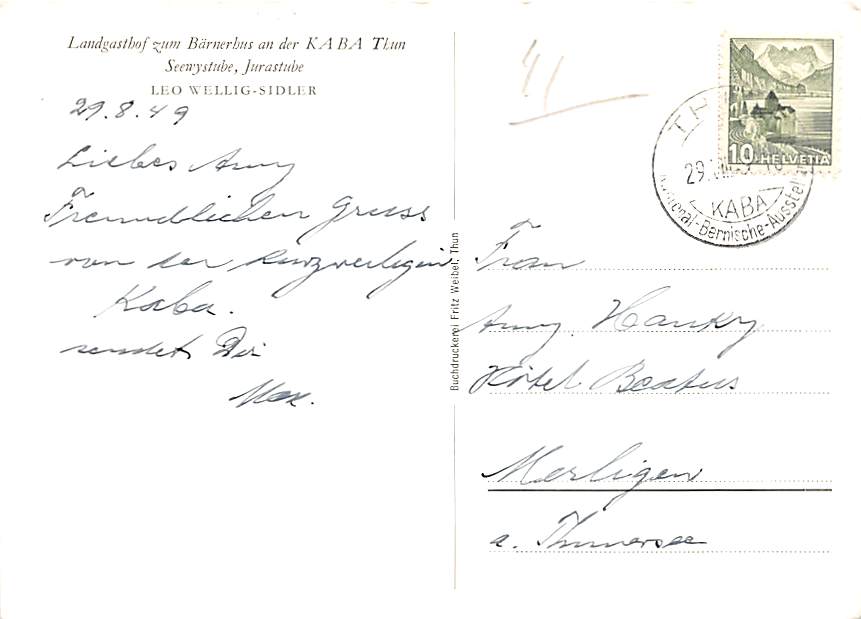 Landgasthof zum Bärnerhus an der KABA Thun
Seewystube, Jurastube
LEO WELLIG-SIDLER
29.8.49
Liebes Anny
Freundlichen Gruss
von der
Kaba.
sendet Dir
Max.
Buchdruckerei Fritz Weibel, Thun
41
10 HELVETIA
TH
29.VIII
KABA
Kantonal-Bernische-Ausstell
Frau
Anny Hanky
Hôtel Beatus
Merligen
a. Thunersee